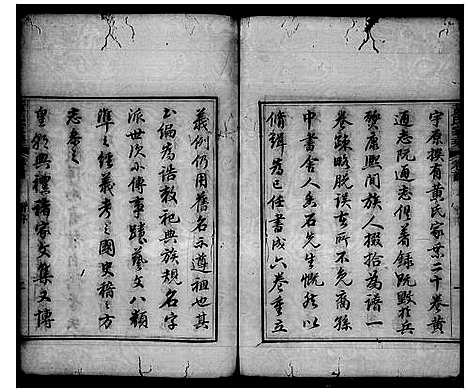 字原撰有黄氏家乘二十卷黄
通志阮通志俱著録既毁於兵
康熙間族人掇拾為譜一
卷疎略脱誤在所不免裔孫
中書舍人 石先生慨然以
脩輯為己任書成六卷重立
義例仍用舊名示遵祖也其
書編為誥敕祀典族規名字
派世次小傳事蹟藝文八類
準之經義考之國史稽之方
志參之
皇朝典禮諸家文集又博